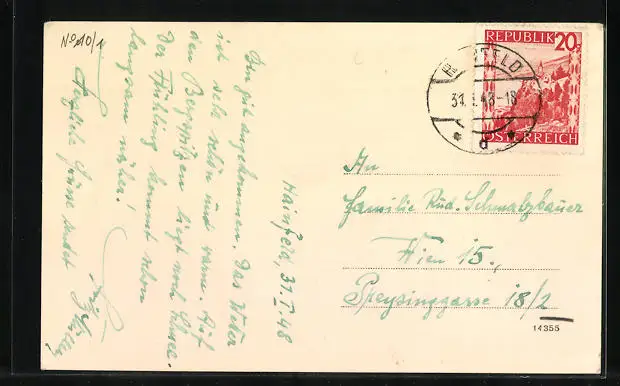 No 210/1
Hainfeld, 31.I.48
Bin gut angekommen. Das Wetter
ist sehr schön und warm. Auf
den Bergspitzen liegt noch Schnee.
Der Frühling kommt schon
langsam näher!
Herzliche Grüsse sendet
REPUBLIK 20
ÖSTERREICH
31.I.48-18
d
An
Familie Rud. Schmalzbauer
Wien 15.,
Preysinggasse 18/2
14355